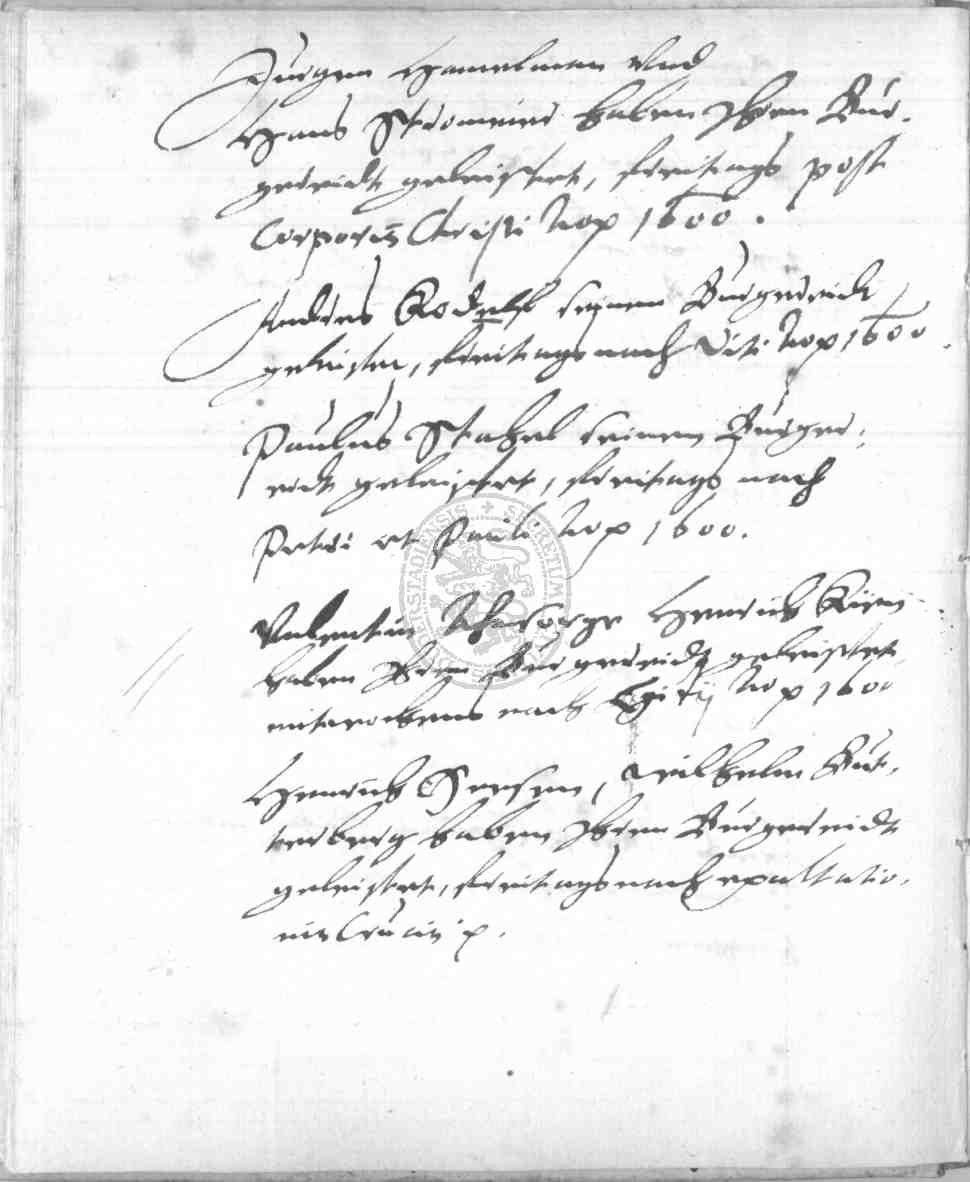 Jurgen Hamelman Vnd
Hans Stromeier haben Ihren Bur-
gereidt geleistet, freitags post
Corporis Christi Anno 1600.
Andres Rodolff seinen Burgereidt
geleistet, freitags nach Viti Anno 1600.
Paulus Stahel seinen Burger-
eidt geleistet, freitags nach
Petri et Pauli Anno 1600.
Valentin Henrich
haben Ihren Burgereidt geleistet
mitwochens nach Egidij Anno 1600
Henrich Seesen, Wilhelm Lut-
terberg haben Ihren Burgereidt
geleistet, freitags nach exaltatio-
nis Crucis
SECRETUM